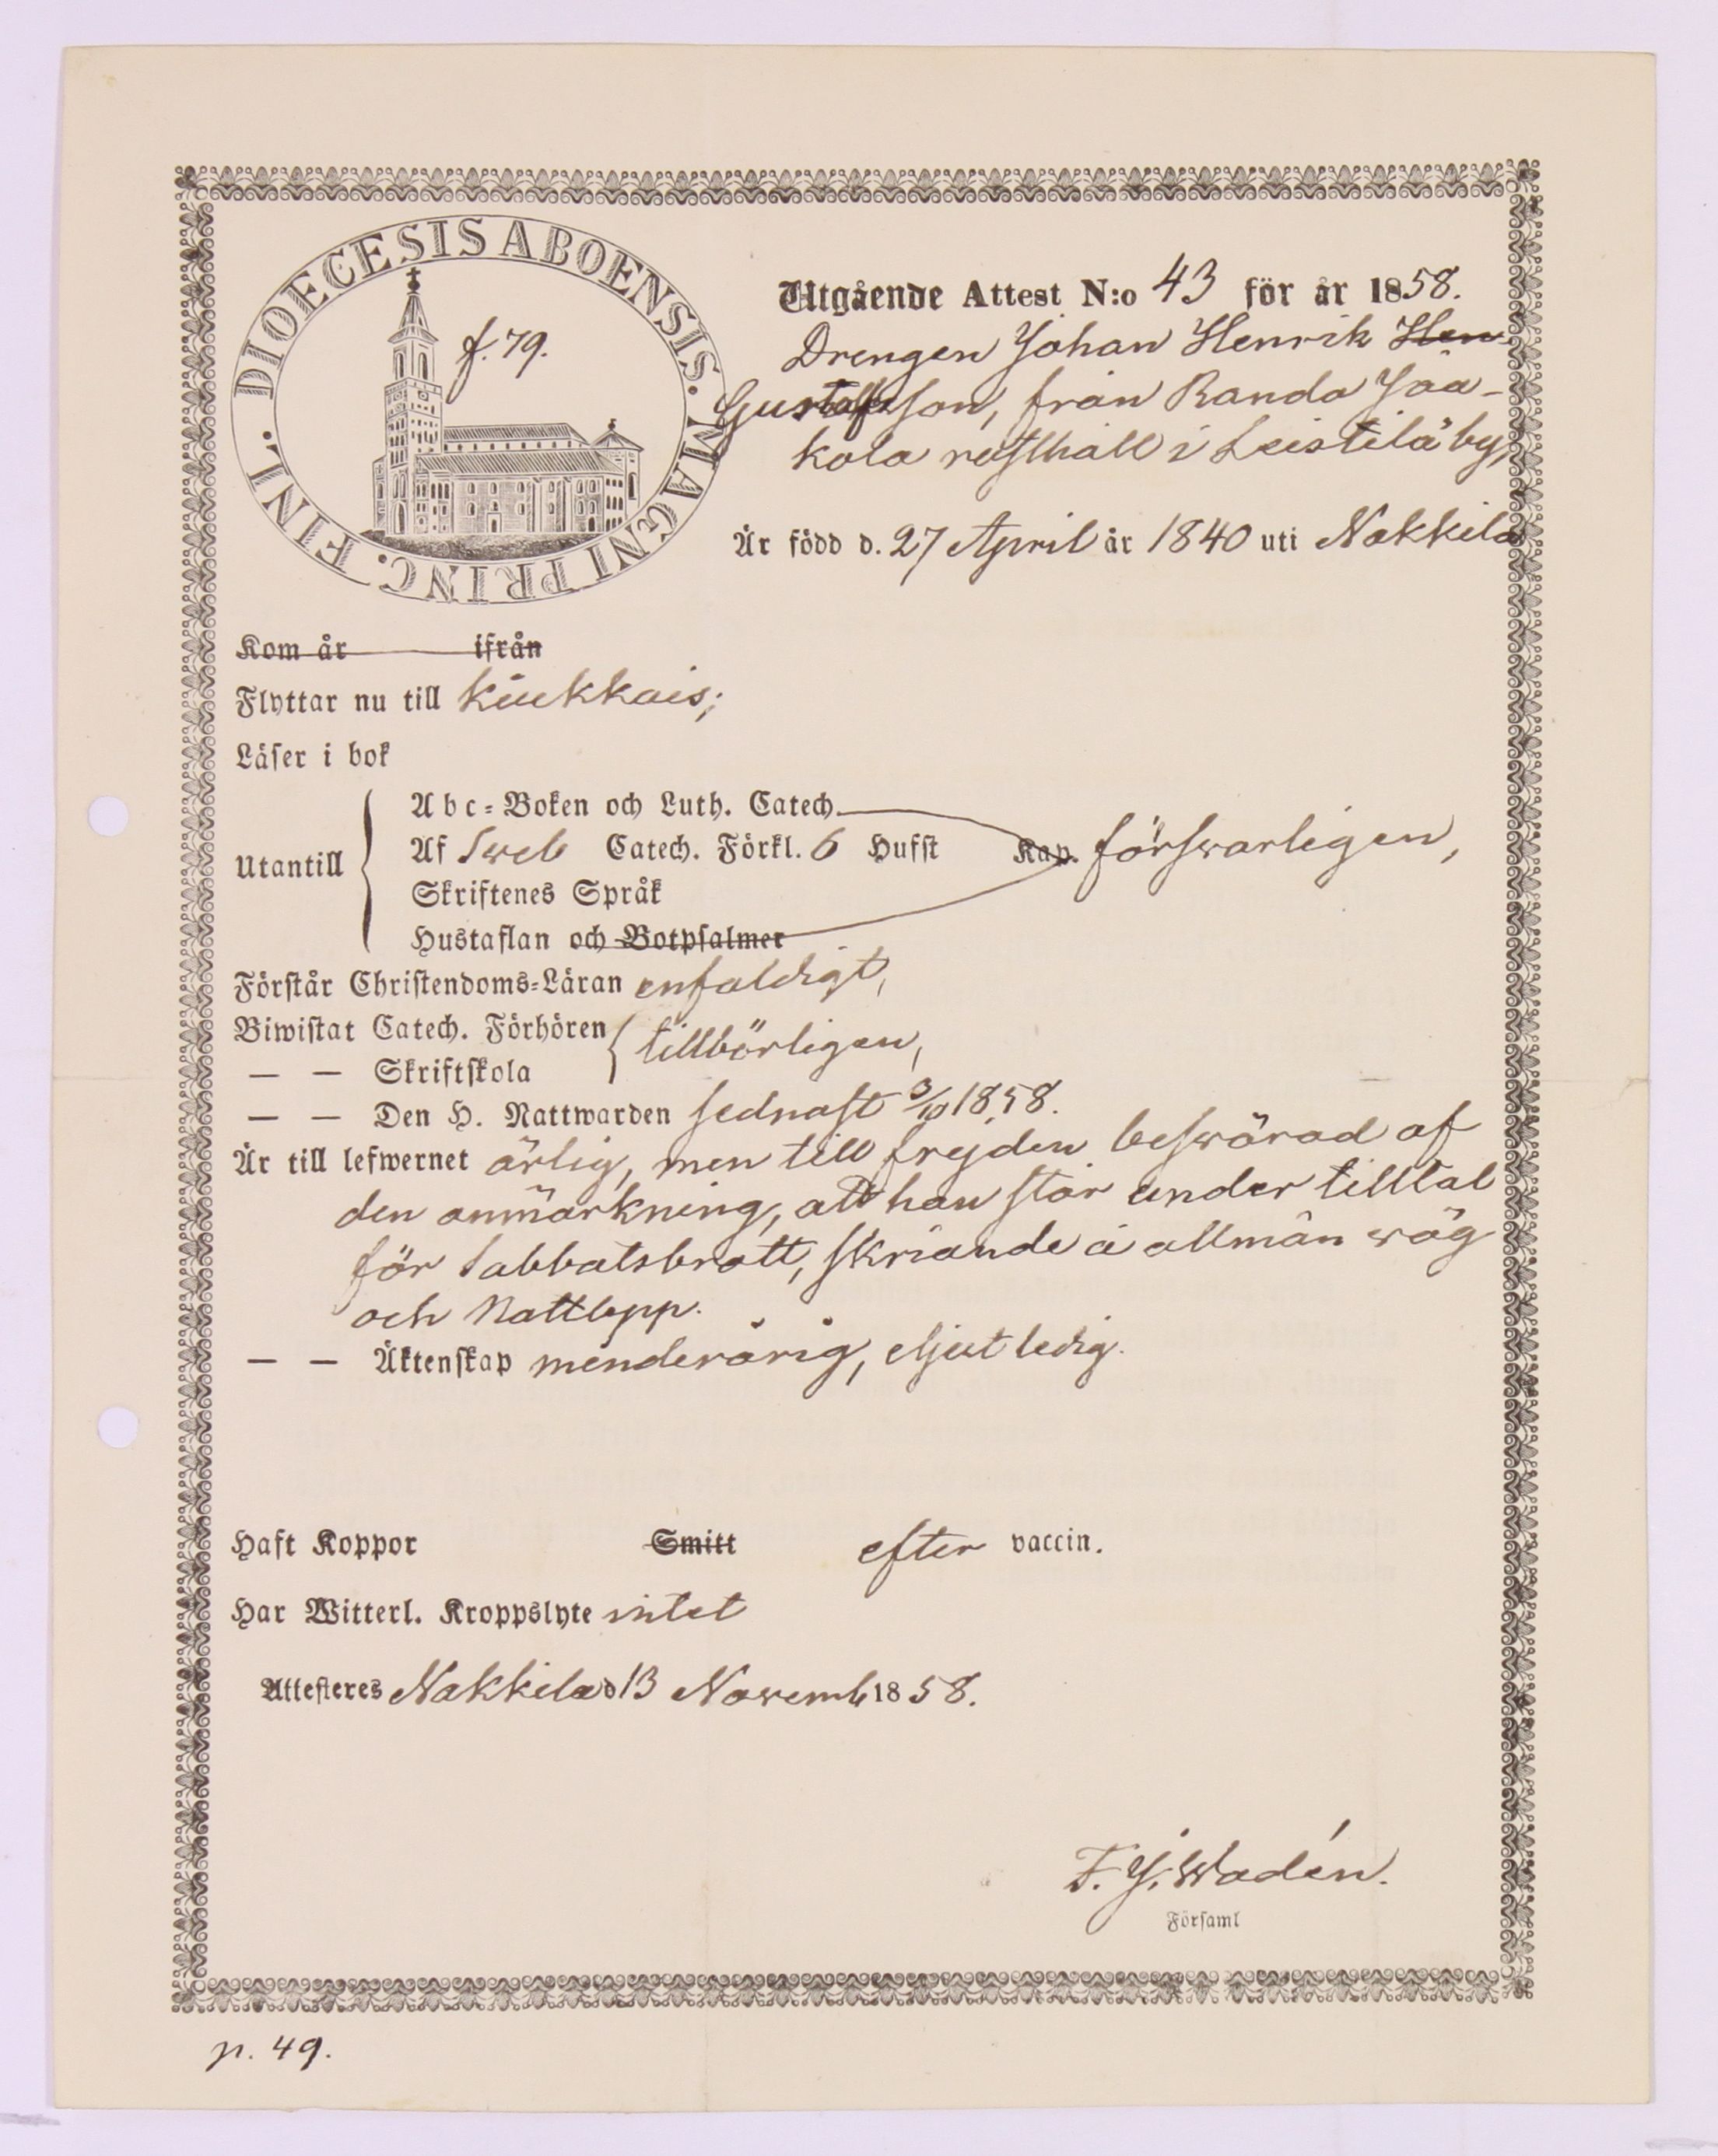 DIOECESIS ABOENSIS. MAGNI PRINC. FINL.
f. 79.
Utgående Attest N:o 43 för år 1858.
Drengen Johan Henrik Hen
Gustafsson, från Randa Jaa-
kola rusthåll i Leistilä by,
Är född d. 27 April år 1840 uti Nakkila
Kom år ifrån
Flyttar nu till Kiukkais;
Läser i bok
Utantill
Abc-Boken och Luth. Catech.
Af Sweb Catech. Förkl. 6 Hufst Kap. försvarligen,
Skriftenes Språk
Hustaflan och Botpsalmer
Förstår Christendoms-Läran enfaldigt,
Biwistat Catech. Förhören tillbörligen,
— — Skriftskola
— — Den H. Nattwarden sednast 3/10 1858.
Är till lefwernet ärlig, men till frejden beswärad af
den anmärkning, att han står under tilltal
för Sabbatsbrott, skriande å allmän wäg
och Nattlopp.
— — Äktenskap minderårig, ledig.
Haft Koppor Smitt efter vaccin.
Har Witterl. Kroppslyte intet
Attesteres Nakkila d 13 Novemb 1858.
F. J. Wadén.
Församl
p. 49.